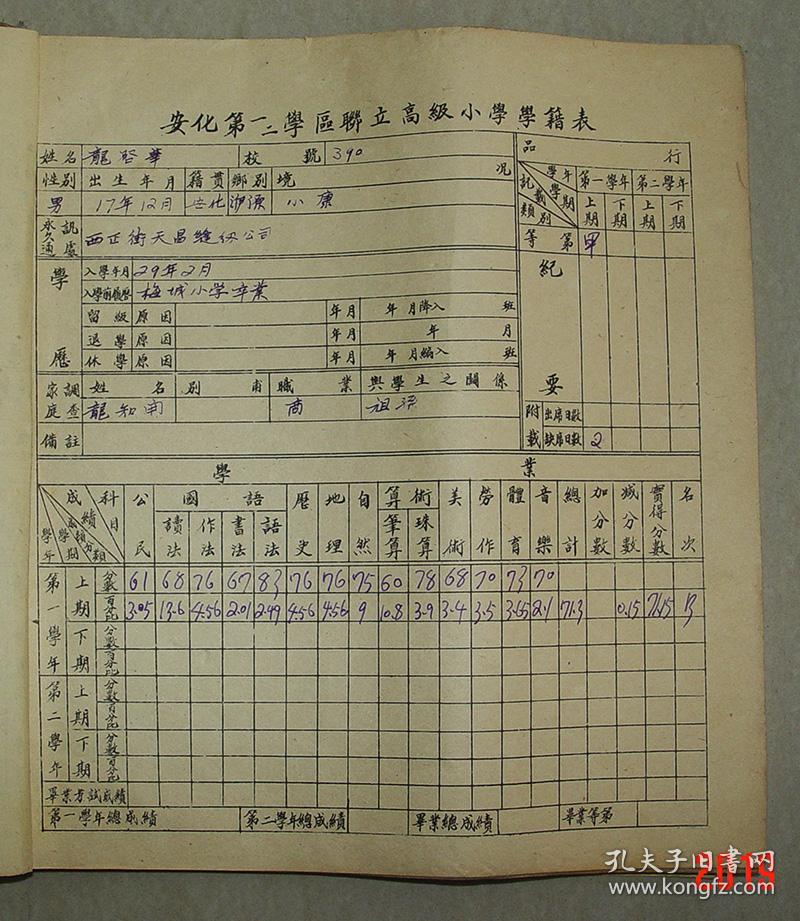 安化第一二學區聯立高級小學學籍表
姓名 龍啓華 校號 390
性別 出生年月 籍貫 鄉別 境況
男 17年12月 安化 小康
永久通訊處 西正街天昌縫紉公司
學歷
入學年月 29年2月
入學前履歷 梅城小學卒業
留級原因 年月 年月降入 班
退學原因 年月 年 月
休學原因 年月 年月編入 班
家庭調查 姓名 別甫 職業 與學生之關係
龍知南 商 祖孫
備註
品行
學年 學期 記載 類別 第一學年 第二學年
上期 下期 上期 下期
等第 甲
紀要
附載 出席日數
缺席日數 2
學業
成績 科目 學年 學期 成績分類 公民 國語 歷史 地理 自然 算術 美術 勞作 體育 音樂 總計 加分數 減分數 實得分數 名次
讀法 作法 書法 語法 筆算 珠算
第一學年 上期 分數 61 68 76 67 83 76 76 75 60 78 68 70 73 70
百分比 3.05 13.6 4.56 2.01 2.49 4.56 4.56 9 10.8 3.9 3.4 3.5 3.65 2.1 71.3 0.15 71.15
下期 分數
百分比
第二學年 上期 分數
百分比
下期 分數
百分比
畢業考試成績
第一學年總成績 第二學年總成績 畢業總成績 畢業等第
孔夫子旧书网
www.kongfz.com
2019